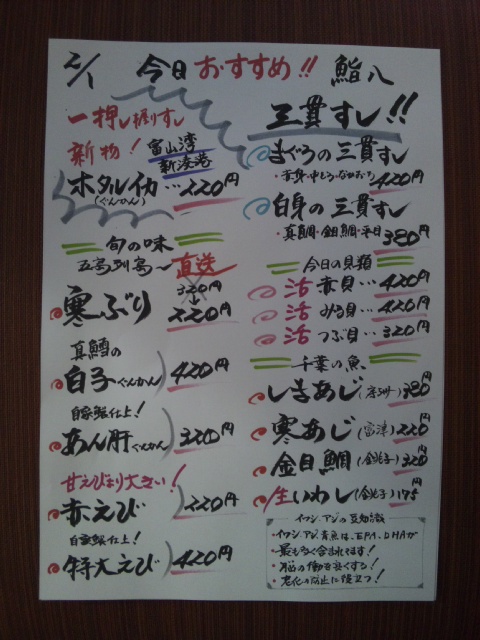 2/1 今日おすすめ!! 鮨八
一押し握りすし
新物! 富山湾
新湊港
ホタルイカ…220円
(ぐんかん)
旬の味
五島列島〜直送
320円
寒ぶり 220円
真鱈の
白子(ぐんかん) 420円
自家製仕上!
あん肝(ぐんかん) 320円
甘えびより大きい!
赤えび 220円
自家製仕上!
特大えび 420円
三貫すし!!
まぐろの三貫すし
・赤身・中とろ・なかおち 420円
白身の三貫すし
・真鯛・金目鯛・平目 380円
今日の貝類
活 赤貝…420円
活 みる貝…420円
活 つぶ貝…320円
千葉の魚
しまあじ 380円
寒あじ(富津) 220円
金目鯛(銚子) 320円
生いわし(銚子) 175円
イワシ、アジの豆知識
・イワシ、アジ、青魚は、EPA、DHAが
最も多く含まれてます!
・脳の働きを良くする!
・老化の防止に役立つ!